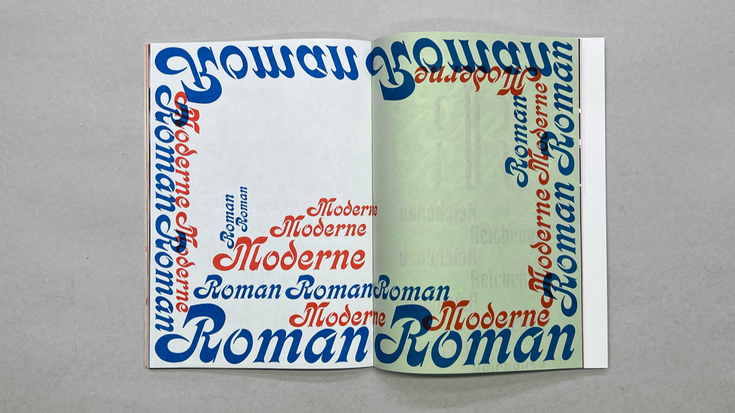 Roman Roman
Moderne
Roman Roman
Moderne Moderne
Roman
Roman
Moderne
Moderne
Moderne
Roman Roman Roman
Moderne Moderne
Roman Roman
Roman
Moderne Moderne
Roman Roman
Reichenau
Reichenau
Reichenau
Reichenau